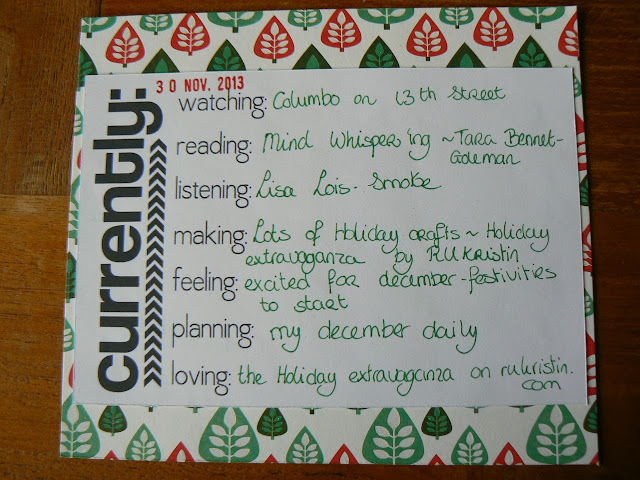 currently:
30 NOV. 2013
watching: Columbo on 13th Street
reading: Mind Whispering ~ Tara Bennet-
Goleman
listening: Lisa Lois - Smoke
making: Lots of Holiday crafts ~ Holiday
extravaganza by RUKristin
feeling: excited for december-festivities
to start
planning: my december daily
loving: the Holiday extravaganza on rukristin.
com